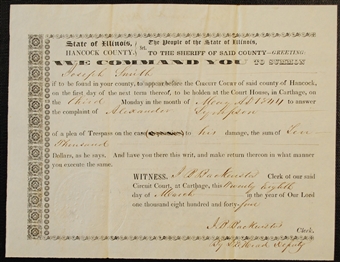 State of Illinois, The People of the State of Illinois,
HANCOCK COUNTY, Sct. TO THE SHERIFF OF SAID COUNTY—GREETING:
WE COMMAND YOU TO SUMMON
Joseph Smith
if to be found in your county, to appear before the Circuit Court of said county of Hancock,
on the first day of the next term thereof, to be holden at the Court House, in Carthage, on
the third Monday in the month of May AD 1844 to answer
the complaint of Alexander Sympson
of a plea of Trespass on the case to his damage, the sum of Ten
Thousand
Dollars, as he says. And have you there this writ, and make return thereon in what manner
you execute the same.
WITNESS, J B Backenstos Clerk of our said
Circuit Court, at Carthage, this Twenty eighth
day of March in the year of Our Lord
one thousand eight hundred and forty four
J. B. Backenstos
Clerk,
By Deputy